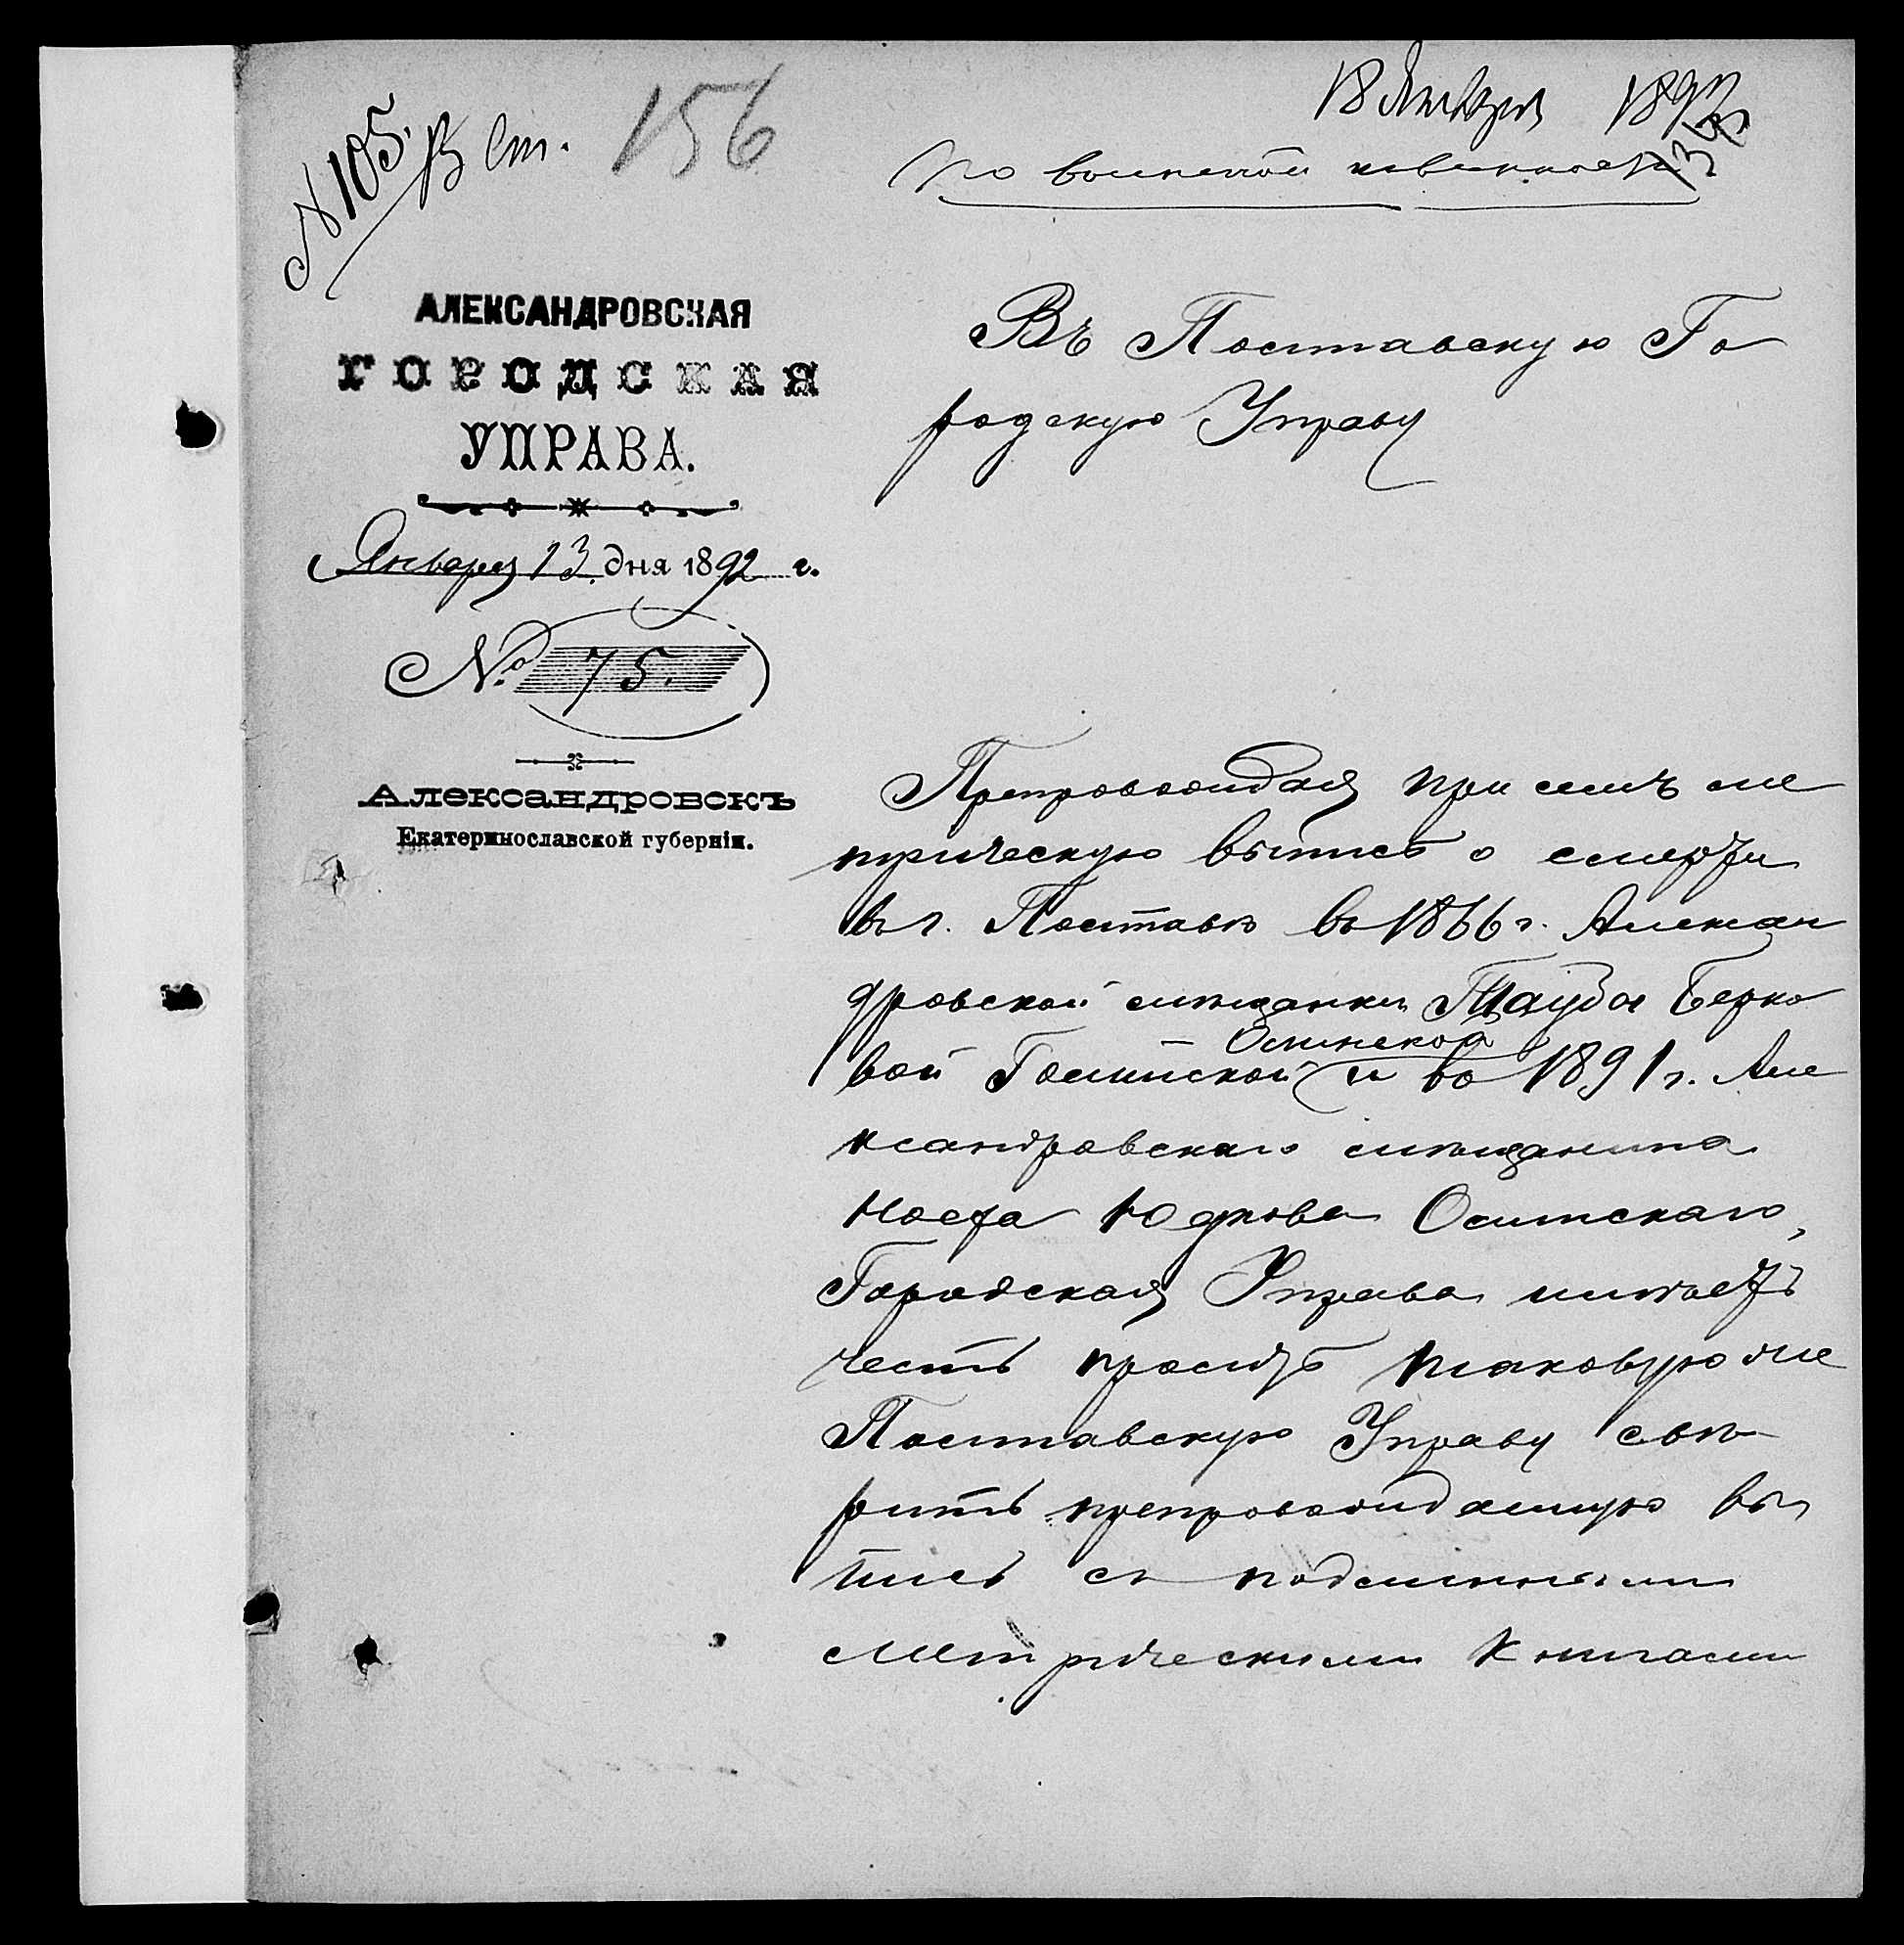 18 Января 1892
№ 105. В ст.
156
По воинской повинности
АЛЕКСАНДРОВСКАЯ
ГОРОДСКАЯ
УПРАВА.
Января 13 дня 1892 г.
№ 75.
Александровскъ
Екатеринославской губерніи.
Въ Полтавскую Го
родскую Управу
Препровождая при семъ ме
трическую выпись о смерти
въ г. Полтавѣ въ 1866 г. Алексан
дровской мѣщанки Таубы Берко
вой
Осинской
и въ 1891 г. Але
ксандровскаго мѣщанина
Юдкова Осинскаго,
Городская Управа имѣетъ
честь просить таковую же
Полтавскую Управу свѣ
рить препровождаемую вы
пись съ подлинными
метрическими книгами